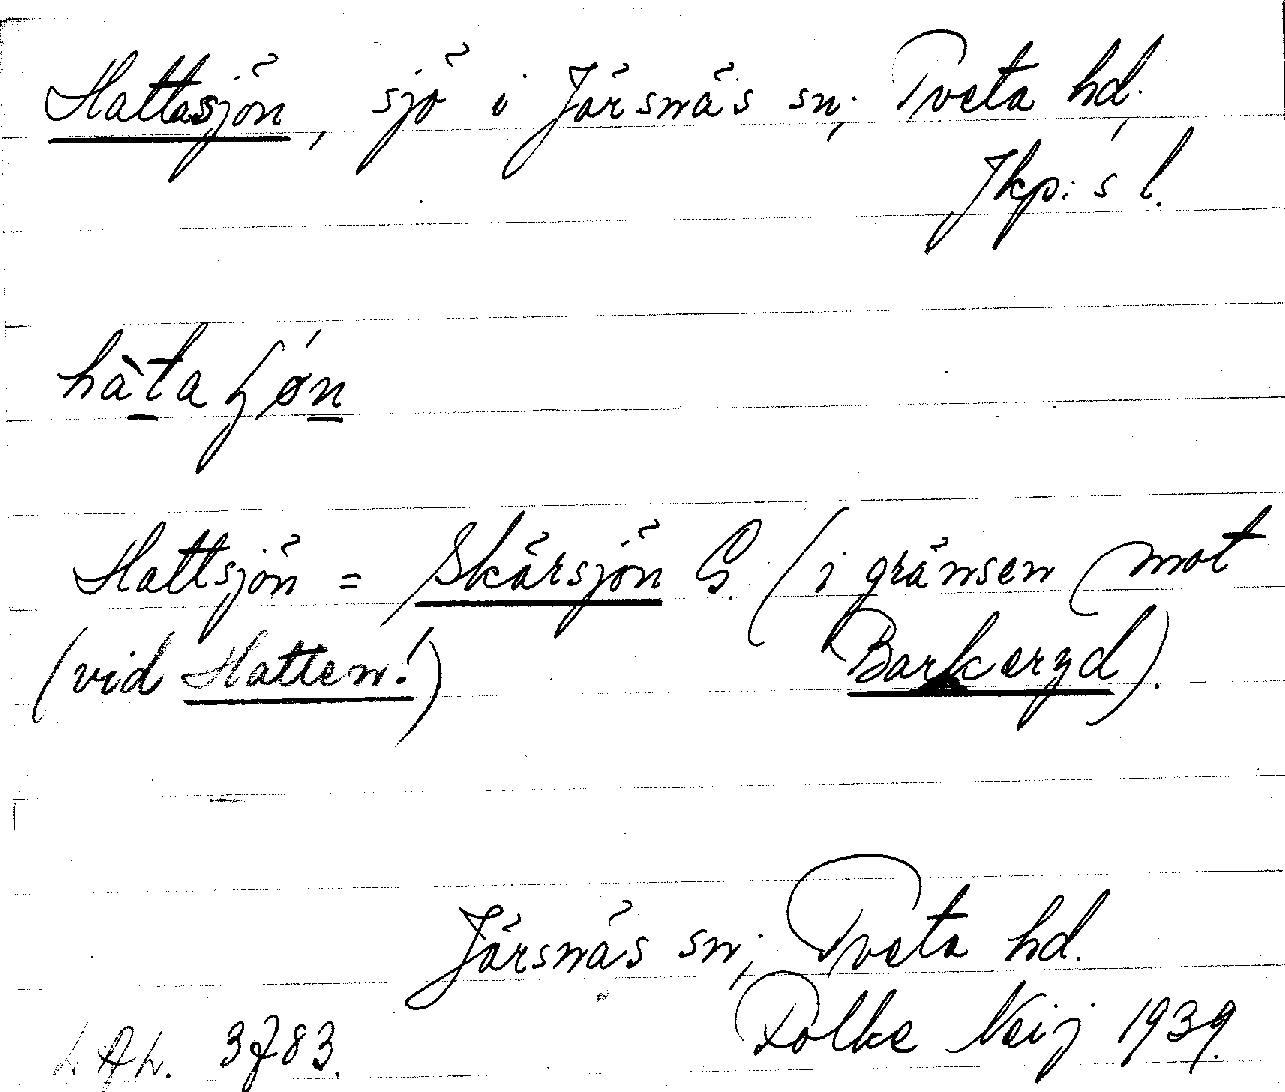 Hattasjön, sjö i Järsnäs sn; Tveta hd.
Jkp:s l.
hàta ʃǿn
Hattsjön = Skärsjön G. (i gränsen mot
(vid Hatten!) Barkeryd).
Järsnäs sn; Tveta hd.
3783. Folke Neij 1939.